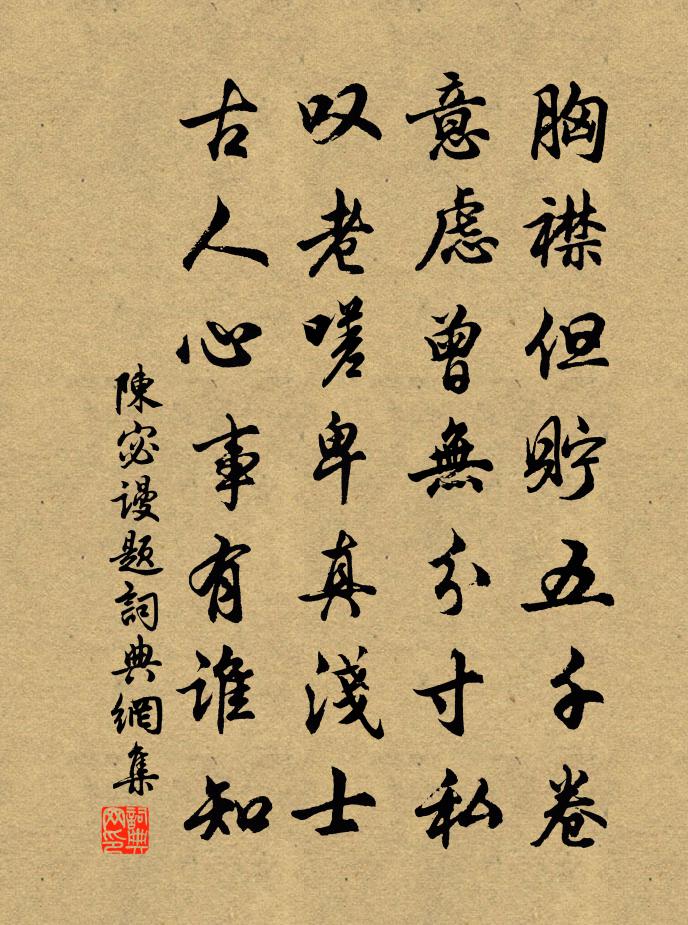 胸襟但貯五千卷
意慮曾無分寸私
叹老嗟卑真淺士
古人心事有誰知
陳宓謾題詞典網集
詞典
网印